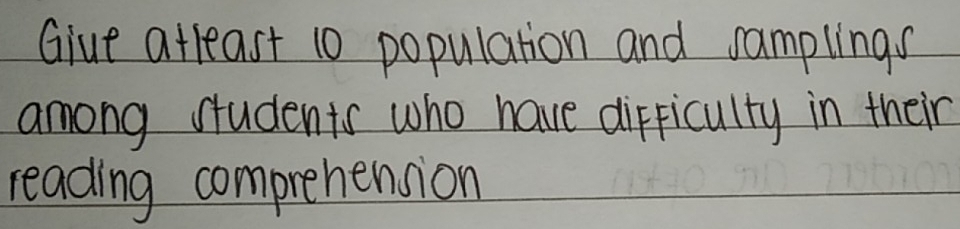 Give atleast 10 population and samplings
among students who have difficulty in their
reading comprehension